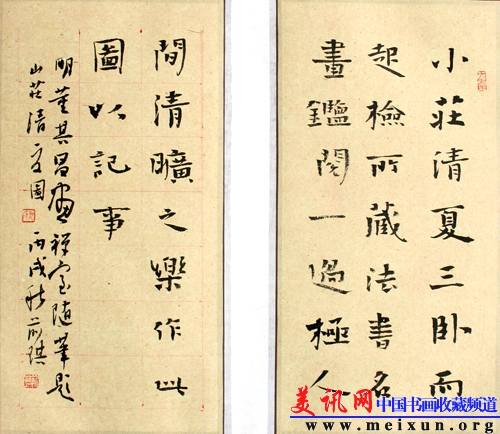 小莊清夏三卧而
起檢所藏法書名
畫鑑閱一過極人
間清曠之樂作此
圖以記事
明董其昌画禅室随筆題
山莊清夏圖 丙戌秋
美讯网 中国书画收藏频道
www.meixun.org